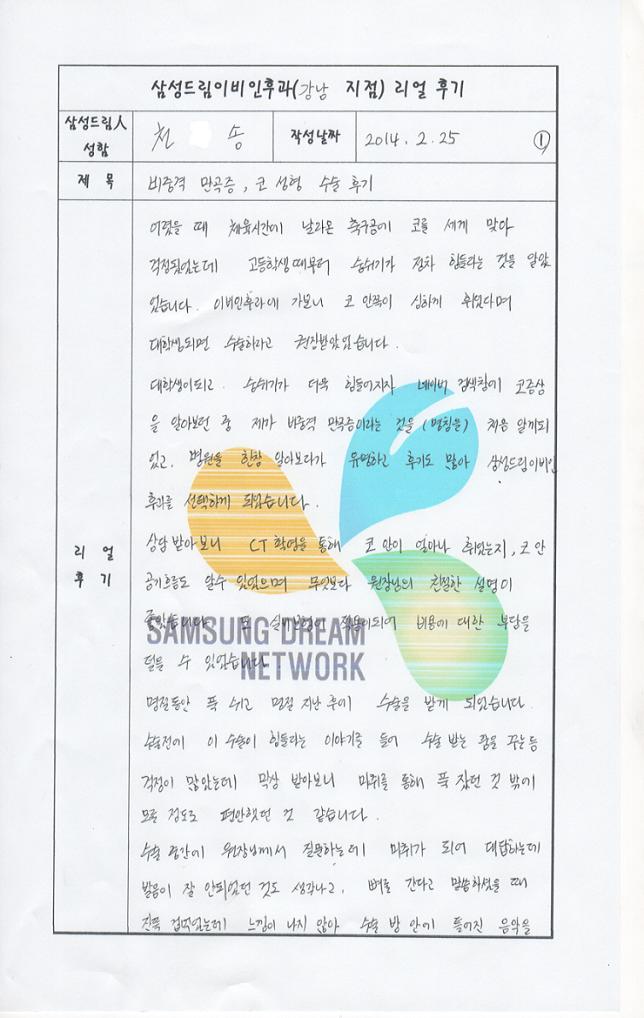 삼성드림이비인후과(강남 지점) 리얼 후기
삼성드림人 성함
천 송
작성날짜
2014. 2. 25
①
제 목
비중격 만곡증, 코 성형 수술 후기
리 얼
후 기
어렸을 때 체육시간에 날라온 축구공에 코를 세게 맞아
걱정됬었는데 고등학생때부터 숨쉬기가 점차 힘들다는 것을 알았
었습니다. 이비인후과에 가보니 코 안쪽이 심하게 휘었다며
대학생되면 수술하라고 권장받았었습니다.
대학생이되고. 숨쉬기가 더욱 힘들어지자 네이버 검색창에 코증상
을 알아보던 중 제가 비중격 만곡증이라는 것을 (명칭을) 처음 알게되
었고. 병원을 한창 알아보다가 유명하고 후기도 많아 삼성드림이비인
후과를 선택하게 되었습니다.
상담 받아보니 CT 촬영을 통해 코 안이 얼마나 휘었는지, 코 안
공기흐름도 알수 있었으며 무엇보다 원장님의 친절한 설명이
좋았습니다 또 실비보험이 적용이되어 비용에 대한 부담을
덜을 수 있었습니다
SAMSUNG DREAM
NETWORK
명절동안 푹 쉬고 명절 지난 후에 수술을 받게 되었습니다.
수술전에 이 수술이 힘들다는 이야기를 들어 수술 받는 꿈을 꾸는등
걱정이 많았는데 막상 받아보니 마취를 통해 푹 잤던 것 밖에
모를 정도로 편안했던 것 같습니다.
수술 중간에 원장님께서 질문하는데 마취가 되어 대답하는데
발음이 잘 안되었던 것도 생각나고, 뼈를 간다고 말씀하셨을 때
잔뜩 겁먹었는데 느낌이 나지 않아 수술 방 안에 틀어진 음악을